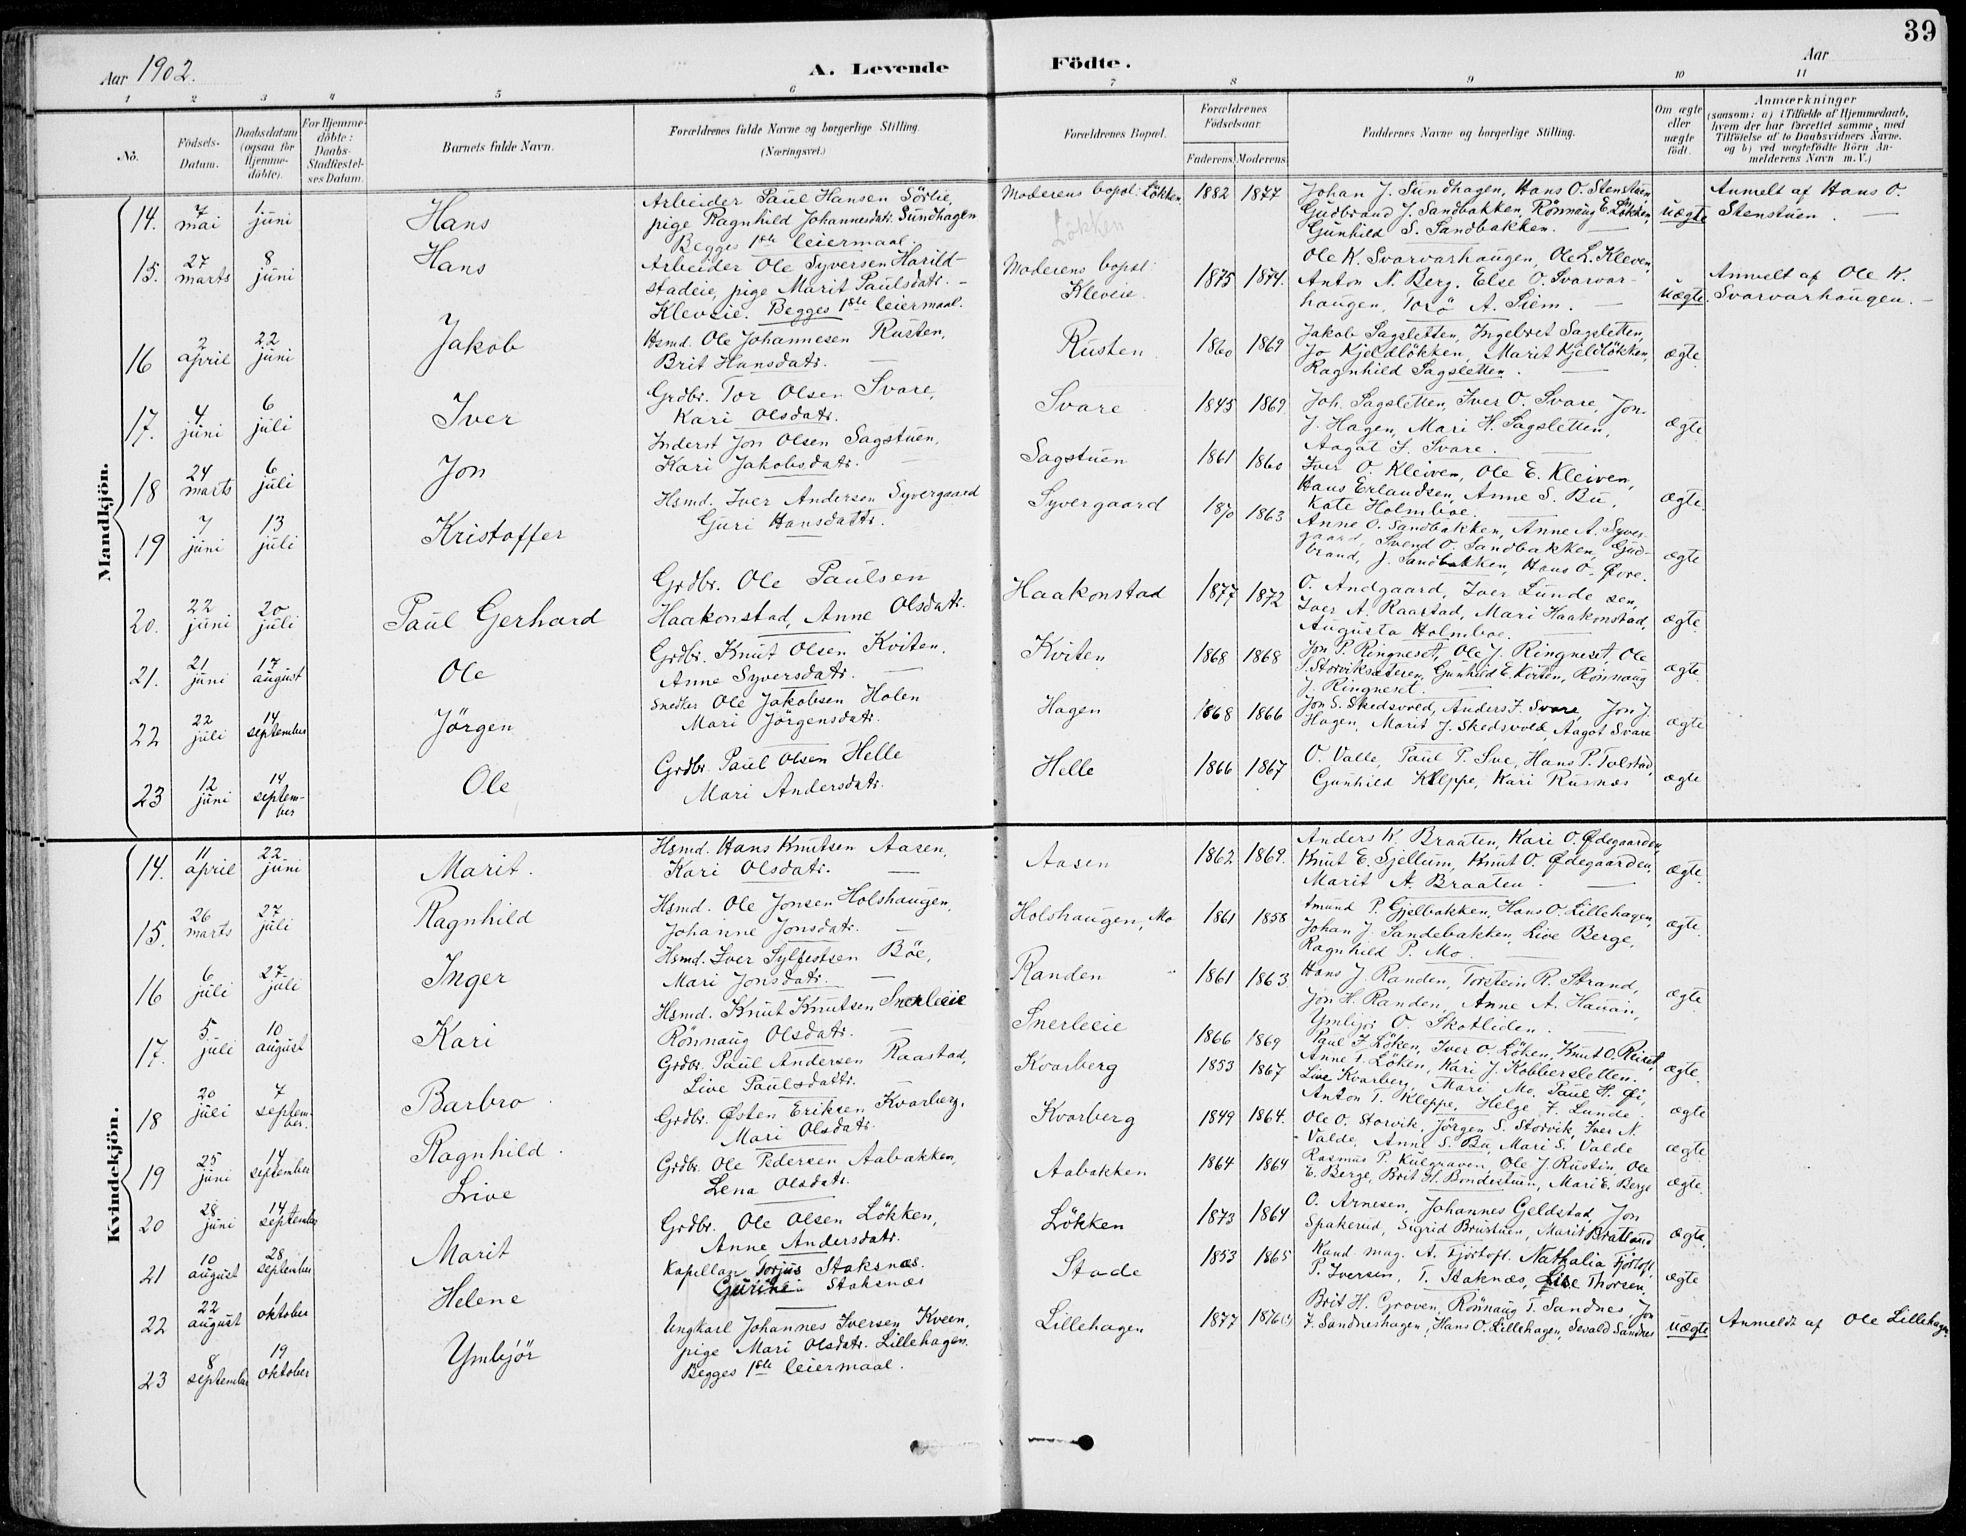 39
Aar 1902.
A. Levende Födte.
Aar
1 2 3 4 5 6 7 8 9 10 11
No.
Födsels-Datum.
Daabsdatum (ogsaa for Hjemme-döbte).
For Hjemme-döbte: Daabs-Stadfæstel-ses Datum.
Barnets fulde Navn.
Forældrenes fulde Navne og borgerlige Stilling. (Næringsvei.)
Forældrenes Bopæl.
Forældrenes Födselsaar.
Faderens. Moderens.
Faddernes Navne og borgerlige Stilling.
Om ægte eller uægte födt.
Anmærkninger
(saasom: a) i Tilfælde af Hjemmedaab, hvem der har forrettet samme, med Tilföielse af to Daabsvidners Navne. og b) ved uægtefödte Börn An-melderens Navn m. V.)
Mandkjön.
14. 7 mai 1 juni Hans
Arbeider Paul Hansen Sörlie,
pige Ragnhild Johannesdatr. Sundhagen
Begges 1ste leiermaal.
Moderens bopæl: Løkken
Løkken
1882 1877
Johan J. Sundhagen, Hans O. Stenstuen,
Gudbrand J. Sandbakken, Rönnaug E. Løkken,
Gunhild S. Sandbakken.
uægte
Anmelt af Hans O.
Stenstuen.
15. 27 marts 8 juni Hans
Arbeider Ole Syversen Harild-
stadeie, pige Marit Paulsdatr.
Kleveie. Begges 1ste leiermaal.
Moderens bopæl:
Kleveie.
1875 1874.
Ole K. Svarvarhaugen, Ole L. Kleven,
Anton N. Berg, Else O. Svarvar-
haugen, Torö A. Siem.
uægte.
Anmelt af Ole K.
Svarvarhaugen.
16 2 april 22 juni Jakob
Hsmd. Ole Johannesen Rusten,
Brit Hansdatr.
Rusten
1860 1869
Jakob Sagsletten, Ingebret Sagsletten,
Jo Kjeldløkken, Marit Kjeldløkken,
Ragnhild Sagsletten.
ægte
17. 4 juni 6 juli Iver
Grdbr. Tor Olsen Svare,
Kari Olsdatr.
Svare
1845 1869
Joh. Sagsletten, Iver O. Svare, Jon
J. Hagen, Mari H. Sagsletten,
Aagot I. Svare.
ægte
18 24 marts 6 juli Jon
Inderst Jon Olsen Sagstuen,
Kari Jakobsdatr.
Sagstuen
1861 1860
Iver O. Kleiven, Ole E. Kleiven,
Hans Erlandsen, Anne S. Bu,
Kate Holmboe.
ægte
19 7 juni 13 juli Kristoffer
Hsmd. Iver Andersen Syvergaard
Guri Hansdatr.
Syvergaard
1870 1863
Anne O. Sandbakken, Anne A. Syver-
gaard, Svend O. Sandbakken, Gud-
brand J. Sandbakken, Hans O. Øvre.
ægte
20. 22 juni 20 juli Paul Gerhard
Grdbr. Ole Paulsen
Haakonstad, Anne Olsdatr.
Haakonstad
1877 1872
O. Andgaard, Iver Lunde sen,
Iver A. Raastad, Mari Haakonstad,
Augusta Holmboe.
ægte
21. 21 juni 17 august Ole
Grdbr. Knut Olsen Kviten.
Anne Syversdatr.
Kviten
1868 1868
Jon P. Ringneset, Ole J. Ringneset, Ole
S. Storviksæteren, Gunhild E. Kviten, Rönnaug
J. Ringneset.
ægte
22 22 juli 14 september Jörgen
Snedker Ole Jakobsen Holen
Mari Jörgensdatr.
Hagen
1868 1866
Jon S. Skedsvold, Anders I. Svare, Jon J.
Hagen, Marit J. Skedsvold, Aagot Svare
ægte
23 12 juni 14 september Ole
Grdbr. Paul Olsen Helle
Mari Andersdatr.
Helle
1866 1867
O. Valle, Paul P. Sve, Hans P. Tolstad,
Gunhild Kleppe, Kari Rusnæs
ægte
Kvindekjön.
14. 11 april 22 juni Marit.
Hsmd. Hans Knutsen Aasen,
Kari Olsdatr.
Aasen
1862. 1869.
Anders K. Braaten, Kari O. Ødegaarden,
Knut E. Sjellum, Knut O. Ødegaarden,
Marit A. Braaten.
ægte.
15. 26 marts 27 juli Ragnhild
Hsmd. Ole Jonsen Holshaugen,
Johanne Jonsdatr.
Holshaugen, Mo
1861 1858
Amund P. Gjelbakken, Hans O. Lillehagen,
Johan J. Sandebakken, Live Berge,
Ragnhild P. Mo.
ægte.
16 6 juli 27 juli Inger
Hsmd. Iver Sylfestsen Böe,
Mari Jonsdatr.
Randen
1861 1863
Hans J. Randen, Torstein R. Strand,
Jon H. Randen, Anne A. Hauan,
Ymbjör O. Skotliden.
ægte
17. 5 juli 10 august Kari
Hsmd. Knut Knutsen Snerleeie
Rönnaug Olsdatr.
Snerleeie
1866 1869
Paul I. Löken, Iver O. Löken, Knut O. Reiret,
Anne I. Löken, Kari J. Kobbersletten.
ægte.
18 20 juli 7 september. Barbro.
Grdbr. Paul Andersen Raastad,
Live Paulsdatr.
Kvarberg
1853 1867
Live Kvarberg, Mari Mo, Paul H. Øi,
Anton T. Kleppe, Helge I. Lunde.
ægte
19 25 juni 14 september Ragnhild.
Grdbr. Østen Eriksen Kvarberg,
Mari Olsdatr.
Kvarberg
1849 1864.
Ole O. Storvik, Jörgen S. Storvik, Iver N.
Valde, Anne S. Bu, Mari S. Valde
ægte
20 28 juni 14 september Live
Grdbr. Ole Pedersen Aabakken,
Lena Olsdatr.
Aabakken
1864 1864
Rasmus P. Kulgraven, Ole J. Rustin, Ole
E. Berge, Brit H. Bondestuen, Mari E. Berge
ægte.
21 10 august 28 september Marit
Grdbr. Ole Olsen Løkken,
Anne Andersdatr.
Løkken
1873 1864
O. Arnesen, Johannes Geldstad, Jon
Spakerud, Sigrid Brustuen, Marit Bratland
ægte,
22 22 august 1 oktober Helene
Kapellan Torjus Staksnæs.
Staksnæs
Stade
1853 1865
Kand mag. A. Fjörtoft. Nathalia Fjörtoft,
P. Iversen, T. Staknæs, Lise Thoresen.
ægte
23 8 september 19 oktober Ymbjör
Ungkarl Johannes Iversen Kveen,
pige Mari Olsdatr. Lillehagen.
Begges 1ste leiermaal.
Lillehagen
1877 1876
Brit H. Groven, Rönnaug T. Sandnes, Jon
I. Sandneshagen, Hans O. Lillehagen, Sevald Sandnes
uægte
Anmeldt af Ole Lillehagen